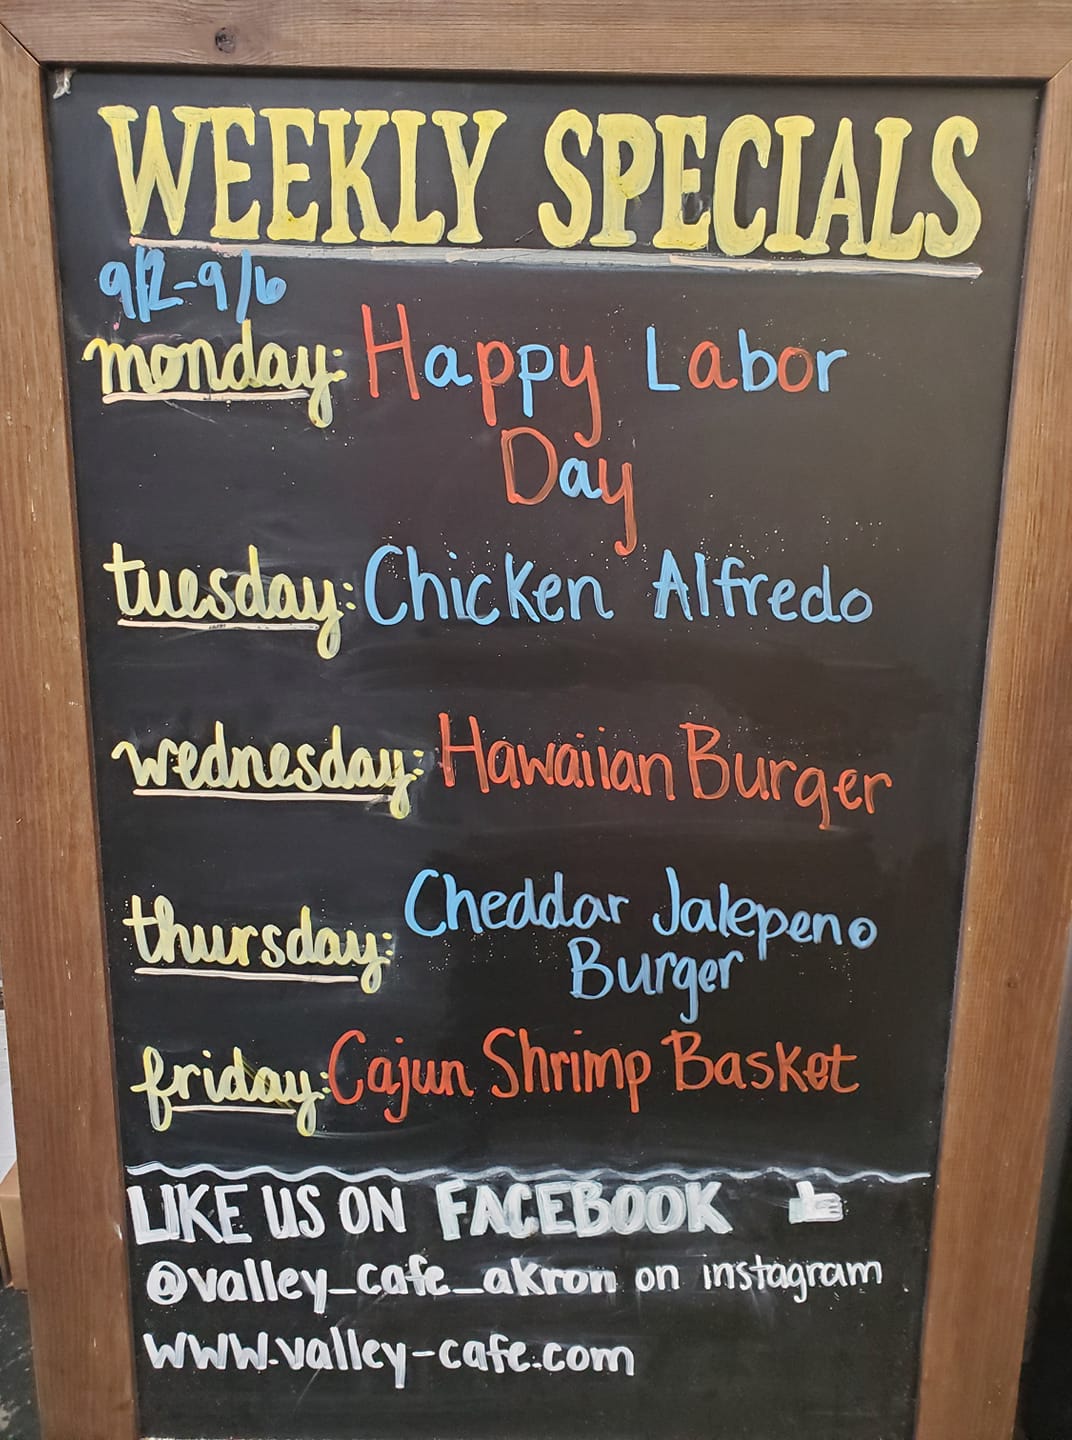 WEEKLY SPECIALS
9/2-9/6
monday: Happy Labor
Day
tuesday: Chicken Alfredo
wednesday: Hawaiian Burger
thursday: Cheddar Jalepeno
Burger
friday: Cajun Shrimp Basket
LIKE US ON FACEBOOK
@valley_cafe_akron on instagram
www.valley-cafe.com